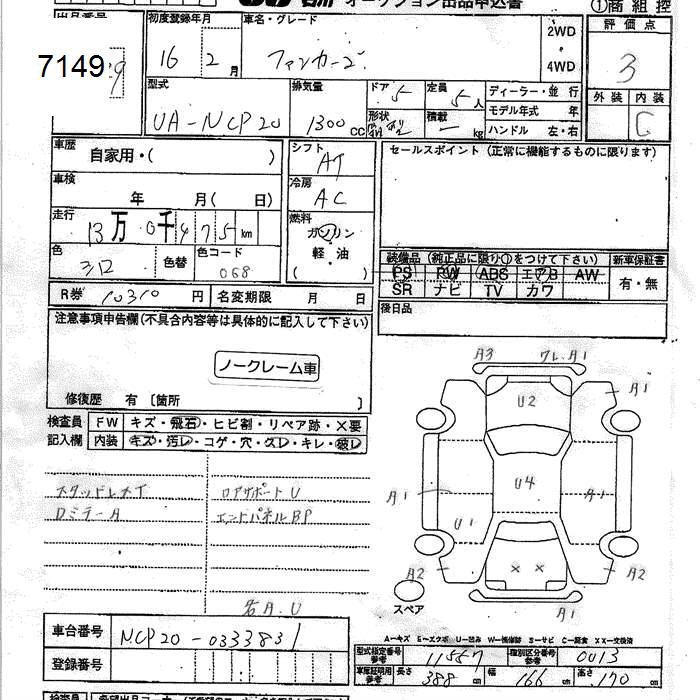 オークション出品申込書
①商 組 控
出品番号
7149
初度登録年月
16年 2月
車名・グレード
ファンカーゴ
2WD
・
4WD
評価点
3
外装 内装
C
型式
UA-NCP20
排気量
1300cc
ドア
5
形状
定員
5人
積載
ー kg
ディーラー・並行
モデル年式 年
ハンドル 左・右
車歴
自家用・( )
車検
年 月( 日)
走行
13万0千475km
色
シルバ
色替
色コード
068
シフト
AT
冷房
AC
燃料
ガソリン
・
軽・油
( )
セールスポイント(正常に機能するものに限ります)
装備品(純正品に限り①をつけて下さい)
PS PW ABS エアB AW
SR ナビ TV カワ
新車保証書
有・無
R券 10310円
名変期限 月 日
後日品
注意事項申告欄(不具合内容等は具体的に記入して下さい)
ノークレーム車
修復歴 有〔箇所 〕
検査員
記入欄
FW キズ・飛石・ヒビ割・リペア跡・X要
内装 キズ・汚レ・コゲ・穴・スレ・キレ・破レ
スタッドレスT
DミラーA
ロアサポートU
エンドパネルBP
各A.U
A3
ワレ.A1
A1
U2
U4
A1
A1
U1
A2
A2
A1
× ×
スペア
A-キズ E-エクボ U-凹み W-補修跡 S-サビ C-腐食 XX-交換済
車台番号 NCP20-0333831
登録番号
型式指定番号
参考
11557
種別区分番号
参考
0013
車庫証明用
参考
長さ 388 cm
幅 166 cm
高さ 170 cm
検査員